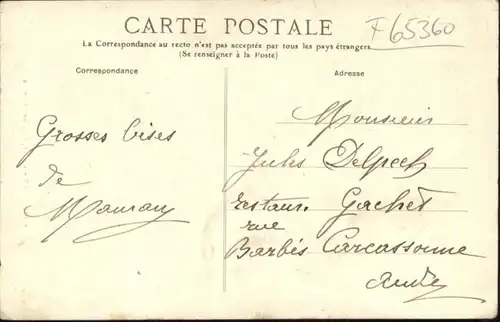 CARTE POSTALE
F65360
La Correspondance au recto n'est pas acceptée par tous les pays étrangers
(Se renseigner à la Poste)
Correspondance
Adresse
Grosses bises
de
Monsieur
Jules Delpech
restaur. Gachet
rue
Barbès Carcassonne
Aude